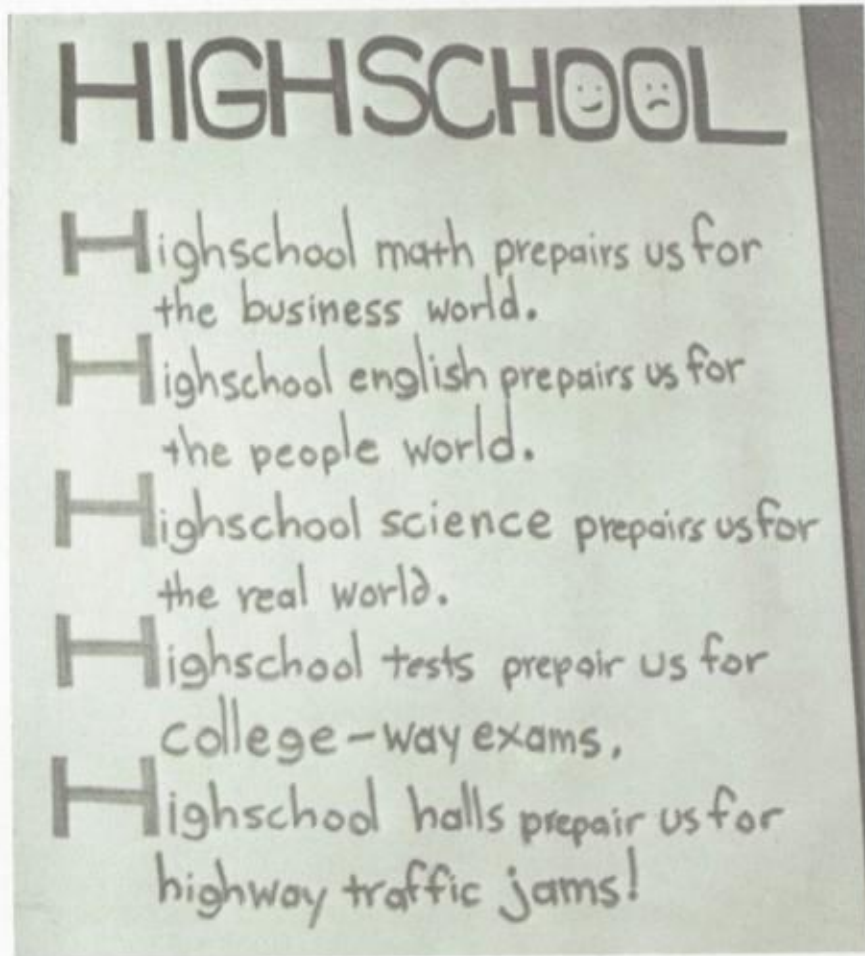 HIGHSCHOOL
Highschool math prepairs us for
the business world.
Highschool english prepairs us for
the people world.
Highschool science prepairs us for
the real world.
Highschool tests prepair us for
college-way exams.
Highschool halls prepair us for
highway traffic jams!